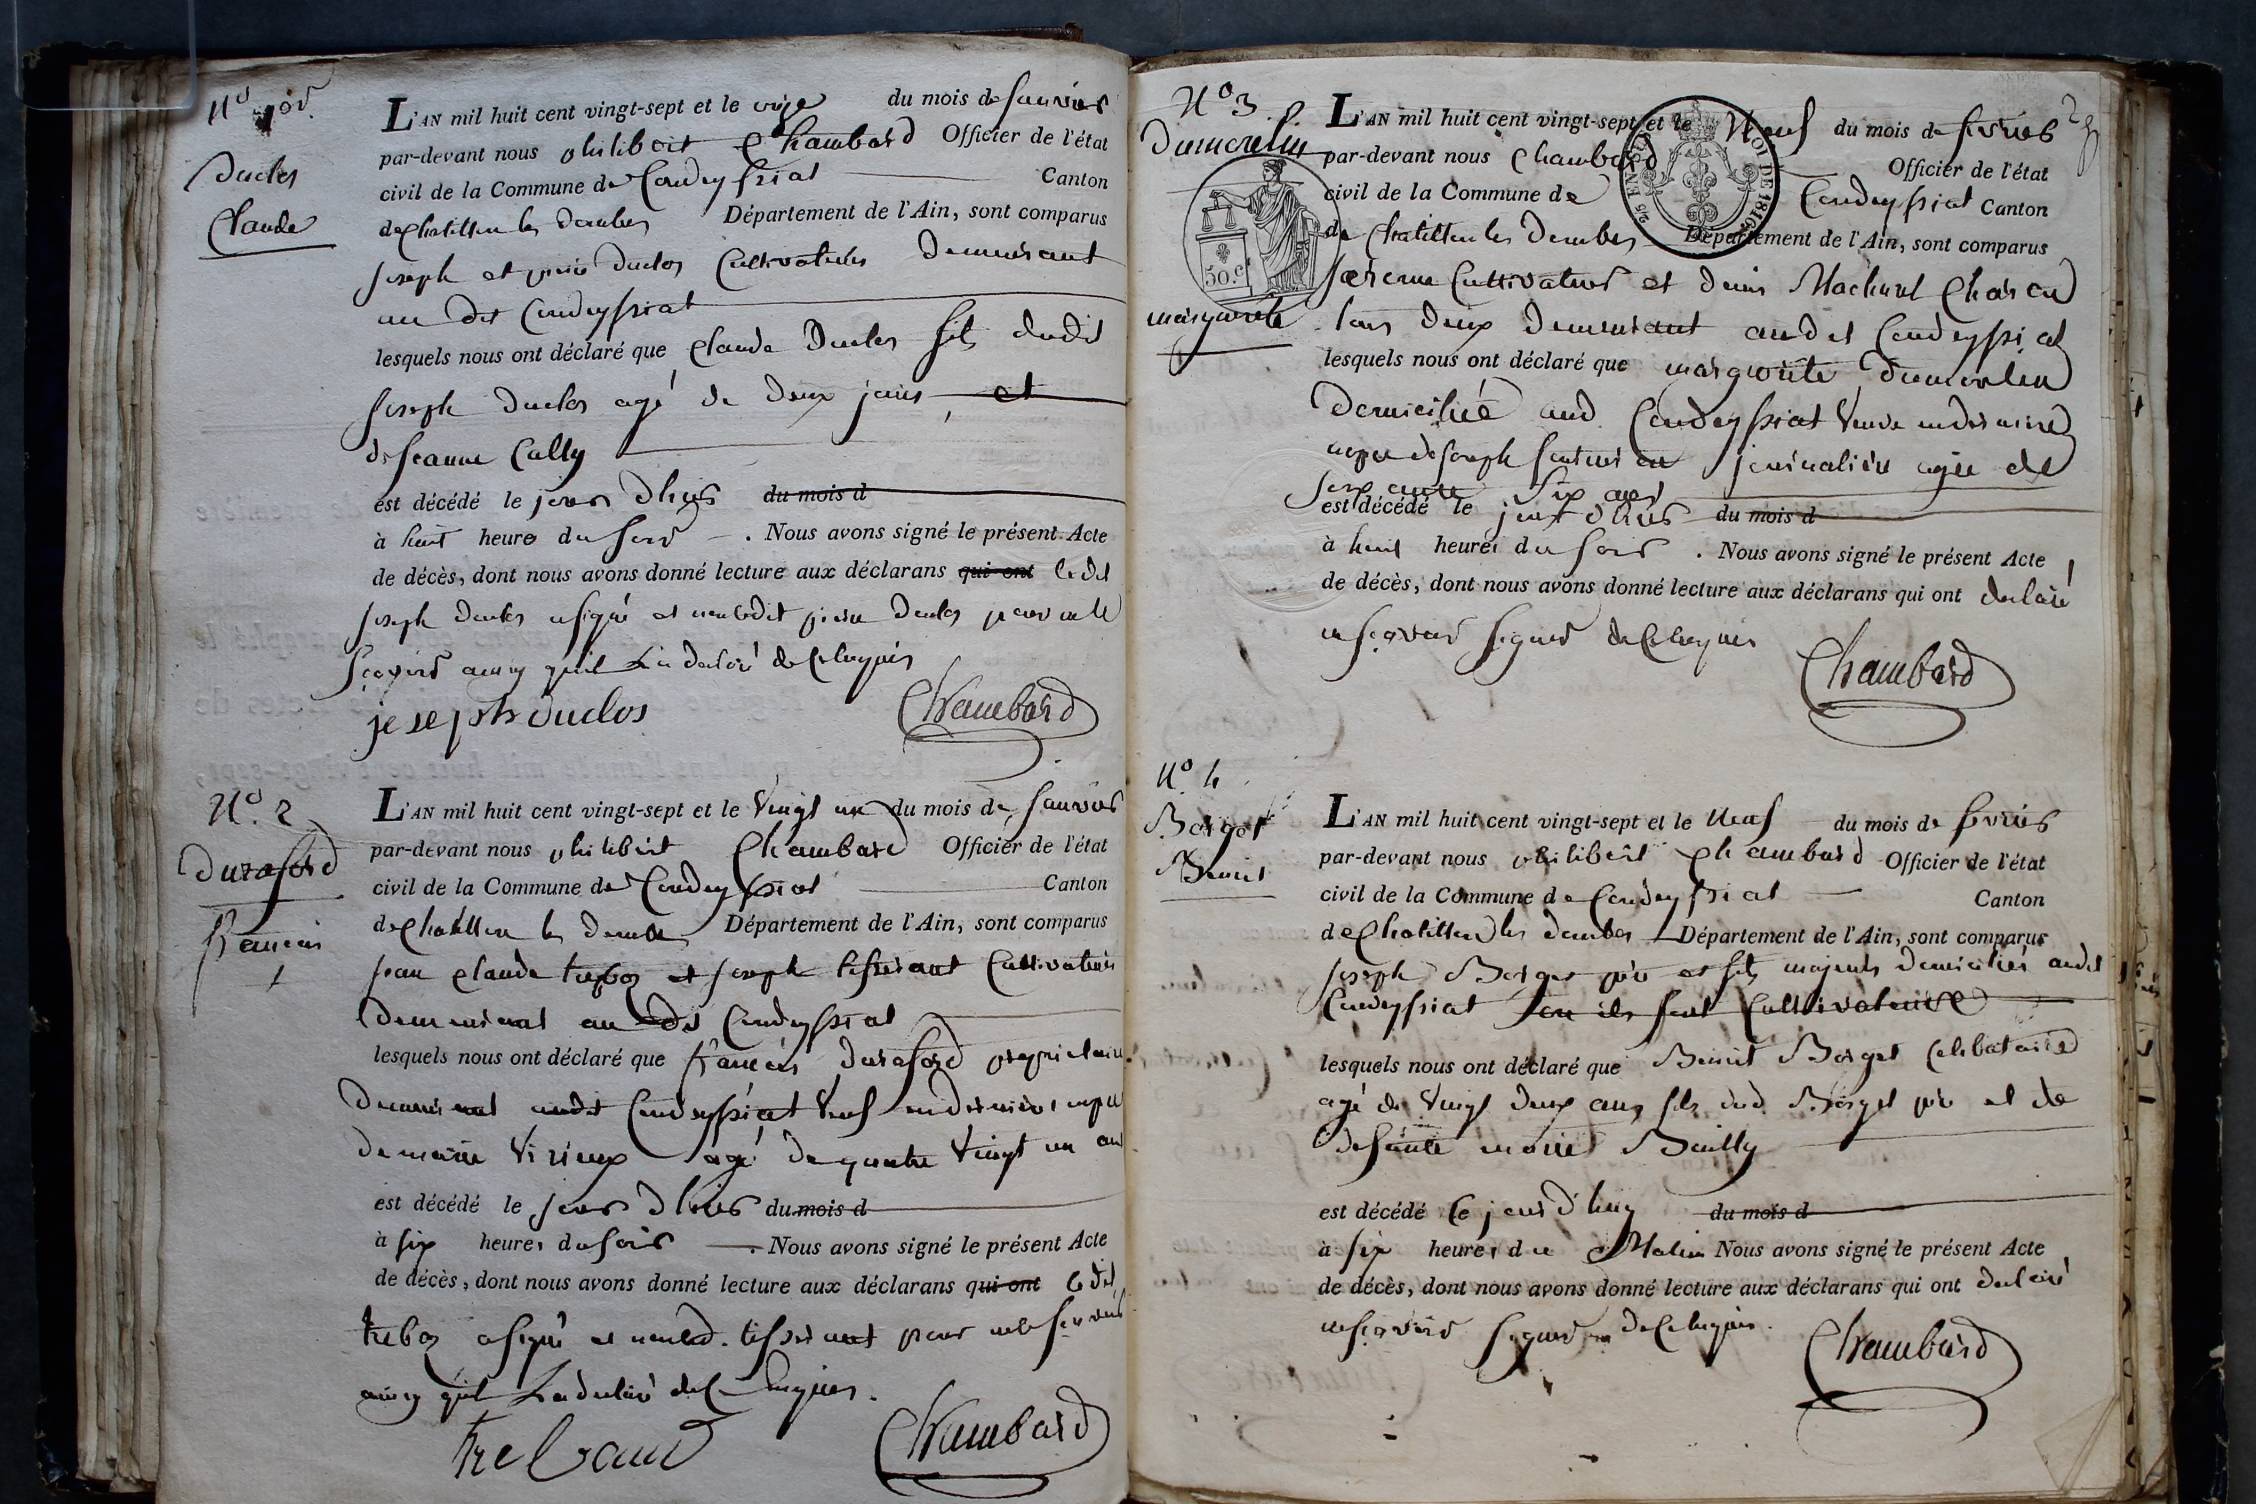 N° 1er
Duclos
Claude
L'AN mil huit cent vingt-sept et le onze du mois de janvier
par-devant nous philibert Chambard Officier de l'état
civil de la Commune de Condeyssiat Canton
de Chatillon les dombes Département de l'Ain, sont comparus
joseph et pierre duclos Cultivateurs demeurant
au dit Condeyssiat
lesquels nous ont déclaré que Claude Duclos fils dudit
joseph duclos agé de deux jours et
de jeanne Cally
est décédé le jour d'hier du mois d
à huit heure du soir. Nous avons signé le présent Acte
de décès, dont nous avons donné lecture aux déclarans qui ont ledit
joseph duclos a signé et non ledit pierre duclos pour ne le
sçavoir ainsy qu'il l'a declaré de ce enquis
joseph duclos Chambard
N° 2
Duraford
francois
L'AN mil huit cent vingt-sept et le vingt un du mois de janvier
par-devant nous philibert Chambard Officier de l'état
civil de la Commune de Condeyssiat Canton
de Chatillon les dombes Département de l'Ain, sont comparus
jean claude et joseph tisserant Cultivateurs
demeurant au dit Condeyssiat
lesquels nous ont déclaré que francois duraford proprietaire
demeurant audit Condeyssiat veuf en derniere
de marie Virieux agé de quatre vingt un ans
est décédé le jour d'hier du mois d
à six heures du soir. Nous avons signé le présent Acte
de décès, dont nous avons donné lecture aux déclarans qui ont ledit
a signé et non led. tisserant pour ne le sçavoir
ainsy qu'il l'a declaré de ce enquis.
Chambard
N° 3
Dumoulin
marguerite
50 c.
25 EN SUS
LOI DE 1816
L'AN mil huit cent vingt-sept et le Neuf du mois de fevrier
par-devant nous Chambard Officier de l'état
civil de la Commune de Condeyssiat Canton
de Chatillon les Dombes Département de l'Ain, sont comparus
Cultivateur et denis
tous deux demeurant audit Condeyssiat
lesquels nous ont déclaré que marguerite dumoulin
domiciliée aud. Condeyssiat veuve en derniere
de joseph journalier agée de
soixante six ans
est décédé le jour d'hier du mois d
à huit heures du soir. Nous avons signé le présent Acte
de décès, dont nous avons donné lecture aux déclarans qui ont declaré
ne sçavoir signer de ce enquis
Chambard
N° 4
Borget
Benoit
L'AN mil huit cent vingt-sept et le Neuf du mois de fevrier
par-devant nous philibert Chambard Officier de l'état
civil de la Commune de Condeyssiat Canton
de Chatillon les dombes Département de l'Ain, sont comparus
joseph Borget père et fils majeurs domiciliés audit
Condeyssiat ou ils sont Cultivateurs
lesquels nous ont déclaré que Benoit Borget Celibataire
agé de vingt deux ans fils dud. Borget père et de
defunte marie Bailly
est décédé le jour d'huy du mois d
à six heures du Matin Nous avons signé le présent Acte
de décès, dont nous avons donné lecture aux déclarans qui ont declaré
ne sçavoir signer de ce enquis.
Chambard